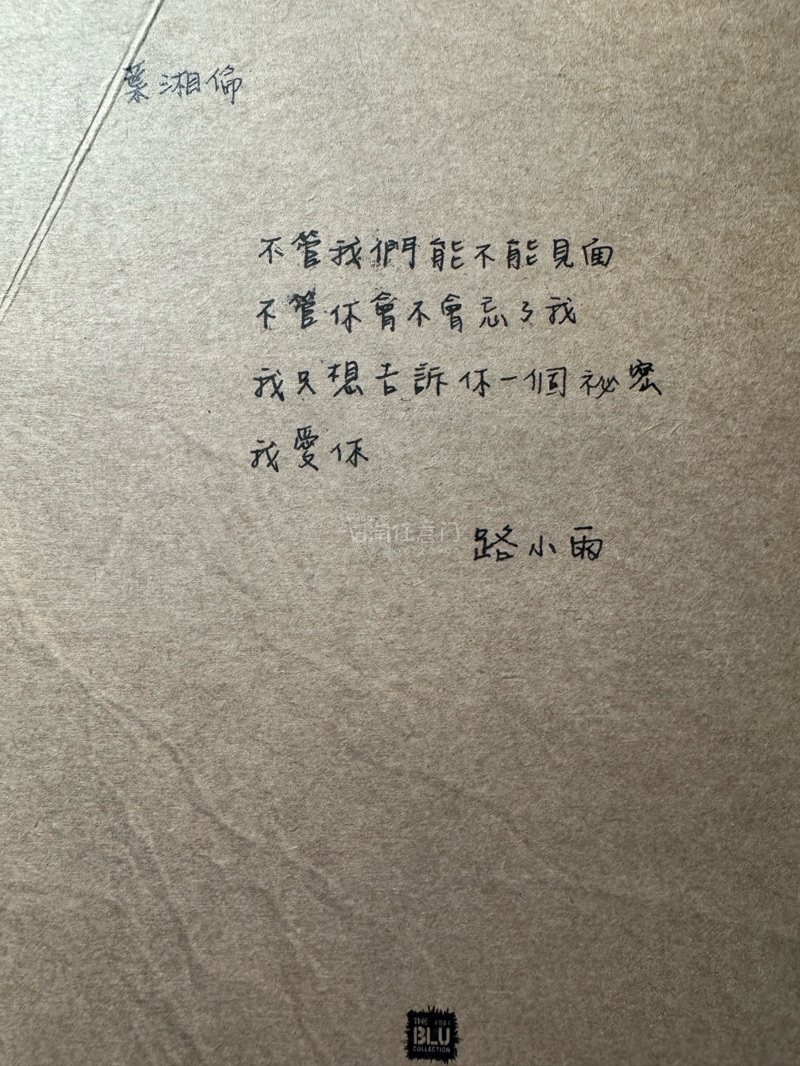 葉湘倫
不管我們能不能見面
不管你會不會忘了我
我只想告訴你一個祕密
我愛你
路小雨
THE
BLU
COLLECTION